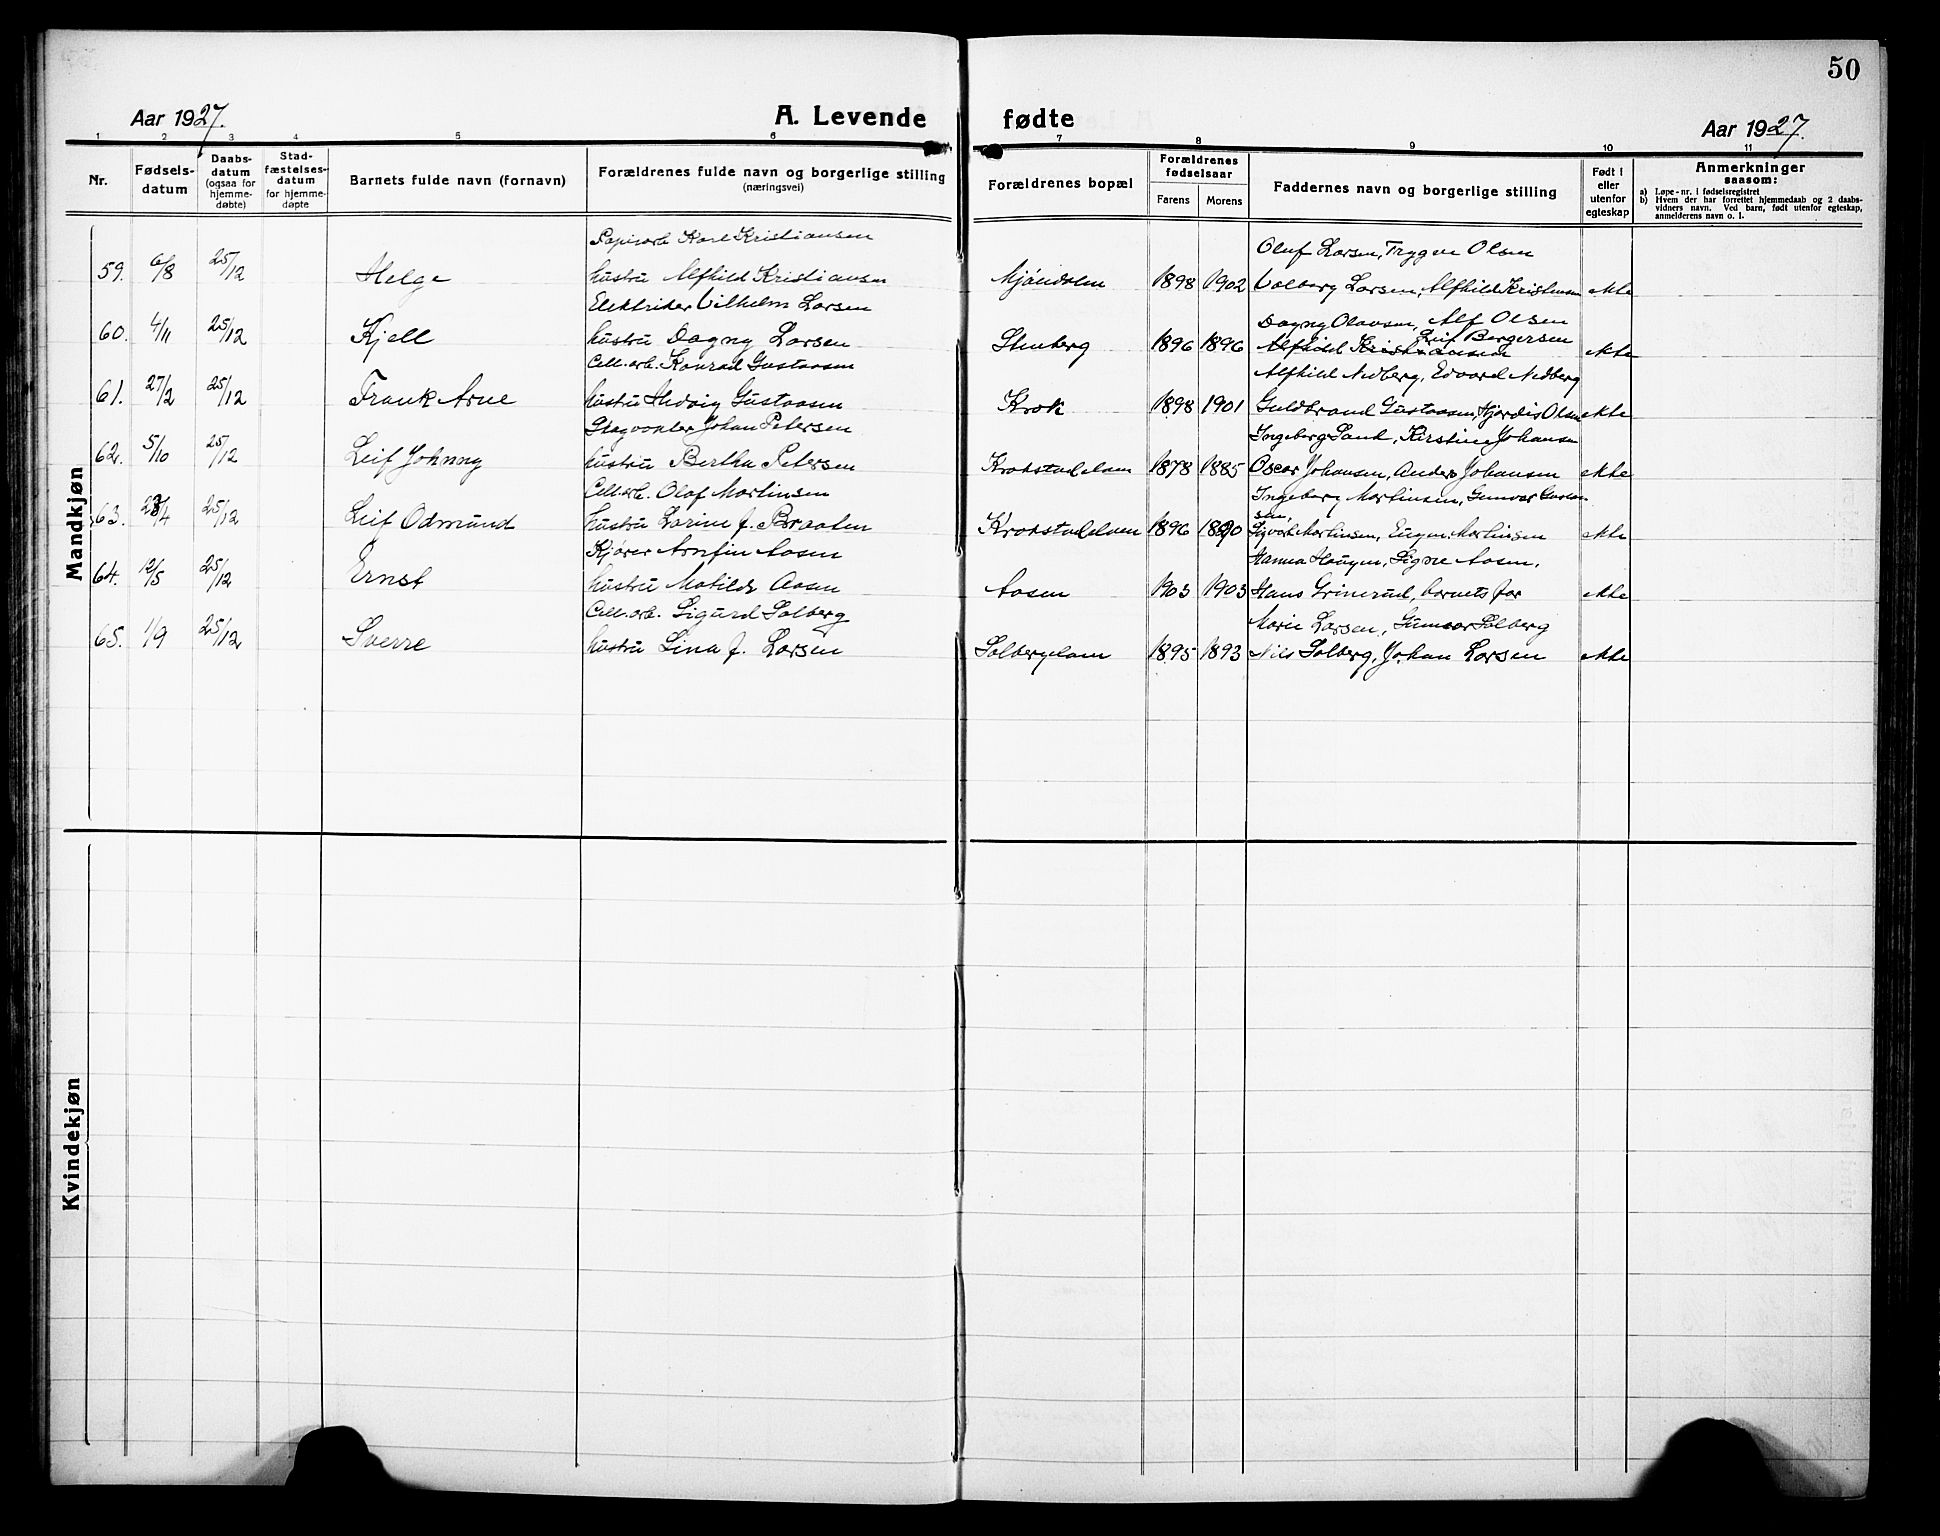 50
Aar 1927.
A. Levende fødte
Aar 1927.
1 2 3 4 5 6 7 8 9 10 11
Nr.
Fødsels-
datum
Daabs-
datum
(ogsaa for
hjemme-
døbte)
Stad-
fæstelses-
datum
for hjemme-
døpte
Barnets fulde navn (fornavn)
Forældrenes fulde navn og borgerlige stilling
(næringsvei)
Forældrenes bopæl
Forældrenes
fødselsaar
Farens Morens
Faddernes navn og borgerlige stilling
Født i
eller
utenfor
egteskap
Anmerkninger
saasom:
a) Løpe-nr. i fødselsregistret
b) Hvem der har forrettet hjemmedaab og 2 daabs-
vidners navn. Ved barn, født utenfor egteskap,
anmelderens navn o. l.
Mandkjøn
Papirarb. Karl Kristiansen Oluf Larsen, Trygve Olsen
59. 6/8 25/12 Helge hustru Alfhild Kristiansen Mjöndalen 1898 1902 Valborg Larsen, Alfhild Kristiansen ekte
Elektriker Vilhelm Larsen Dagny Olavsen, Alf Olsen
60. 4/11 25/12 Kjell hustru Dagny Larsen Stenberg 1896 1896 Alfhild Kristiansen Leif Bergersen ekte
Cell.arb. Konrad Gustavsen Alfhild Nedberg, Edvard Nedberg
61. 27/2 25/12 Frank Arne hustru Hedvig Gustavsen Krok 1898 1901 Guldbrand Gustavsen, Hjördis Olsen ekte
Skogvokter Johan Petersen Ingeborg Sand, Kirstine Johansen
62. 5/10 25/12 Leif Johnny hustru Bertha Petersen Krokstadelven 1878 1885 Oscar Johansen, Anders Johansen ekte
Cell.arb. Olaf Martinsen Ingeborg Martinsen, Gunvor Gustavsen,
63. 23/4 25/12 Leif Odmund hustru Lorine f. Braaten Krokstadelven 1896 1890 Sigvart Martinsen, Eugen Martinsen ekte
Kjører Arnfin Aasen Hanna Haugen, Signe Aasen,
64. 12/5 25/12 Ernst hustru Matilde Aasen Aasen 1903 1903 Hans Grinerud, barnets far ekte
Cell.arb. Sigurd Solberg Marie Larsen, Gunvor Solberg
65. 1/9 25/12 Sverre hustru Lina f. Larsen Solbergelven 1895 1893 Nils Solberg, Johan Larsen ekte
Kvindekjøn